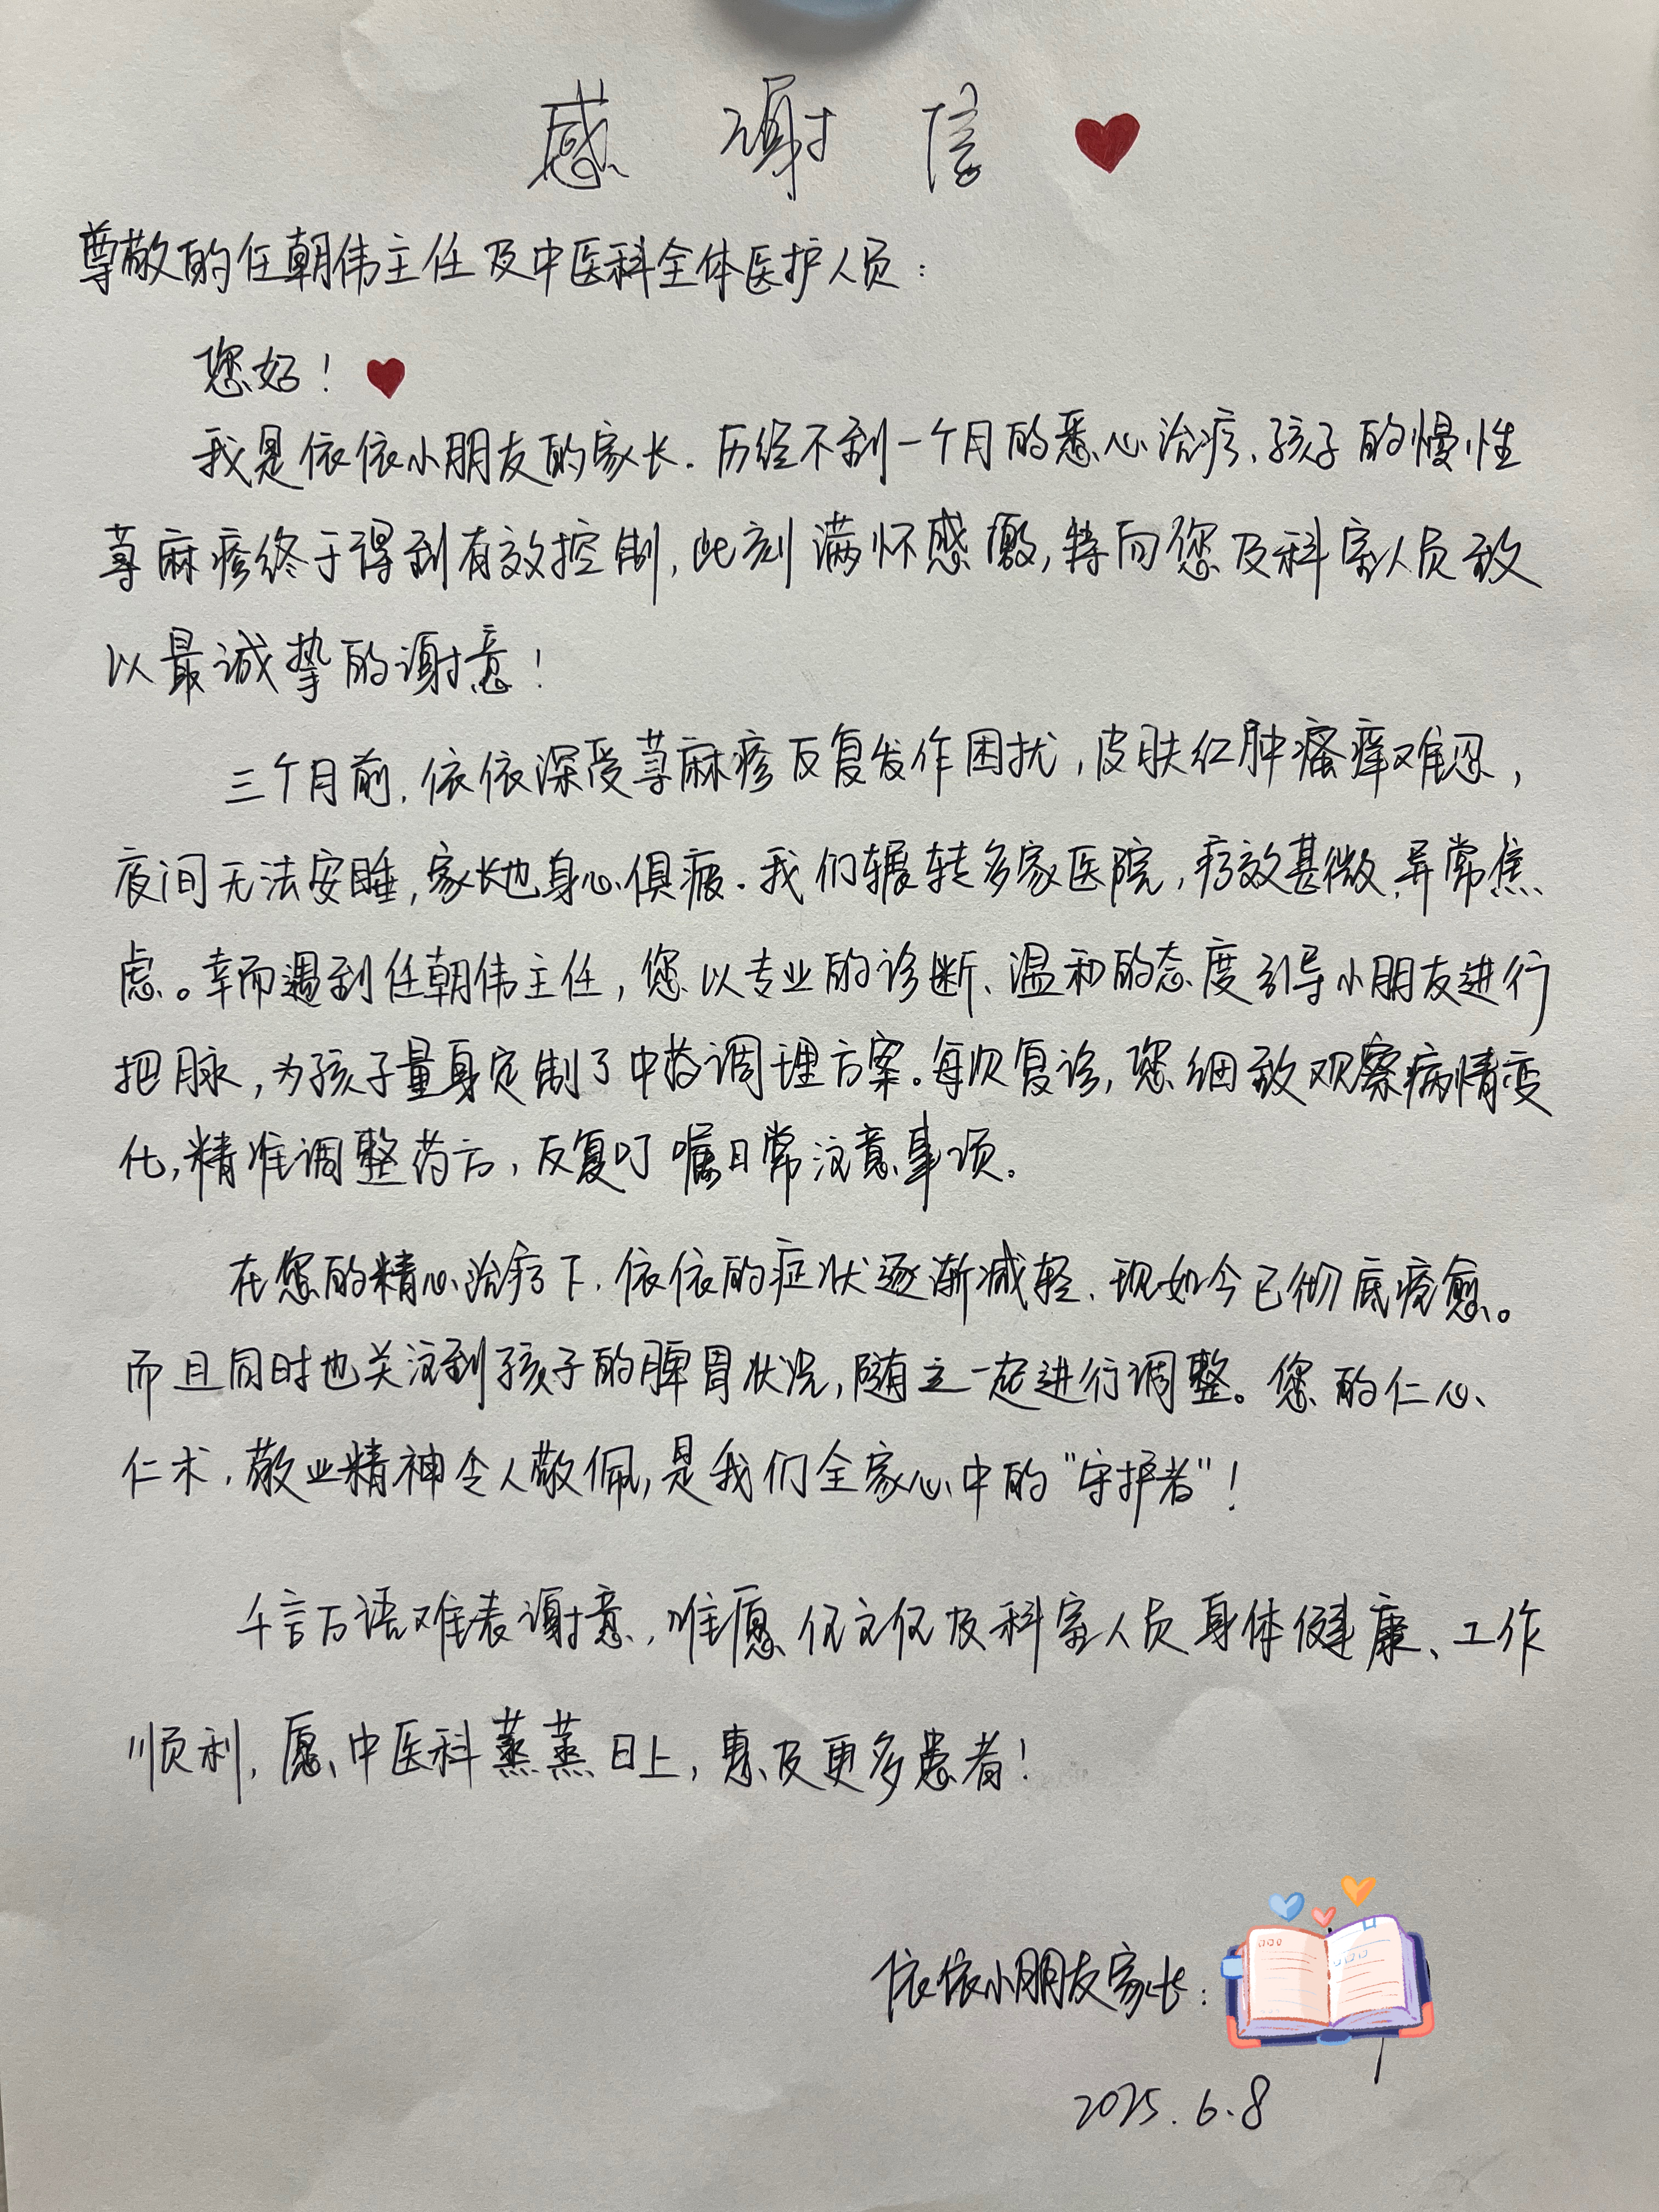 感谢信
尊敬的任朝伟主任及中医科全体医护人员：
您好！
我是依依小朋友的家长．历经不到一个月的悉心治疗、孩子的慢性
荨麻疹终于得到有效控制，此刻满怀感激，特向您及科室人员致
以最诚挚的谢意！
三个月前，依依深受荨麻疹反复发作困扰，皮肤红肿瘙痒难忍，
夜间无法安睡，家长也身心俱疲．我们辗转多家医院，疗效甚微，异常焦
虑。幸而遇到任朝伟主任，您以专业的诊断、温和的态度引导小朋友进行
把脉，为孩子量身定制了中药调理方案。每次复诊，您细致观察病情变
化，精准调整药方，反复叮嘱日常注意事项。
在您的精心治疗下、依依的症状逐渐减轻、现如今已彻底痊愈。
而且同时也关注到孩子的脾胃状况，随之一起进行调整。您的仁心、
仁术，敬业精神令人敬佩，是我们全家心中的“守护者”！
千言万语难表谢意，唯愿 及科室人员身体健康、工作
顺利，愿中医科蒸蒸日上，惠及更多患者！
依依小朋友家长：
2025.6.8